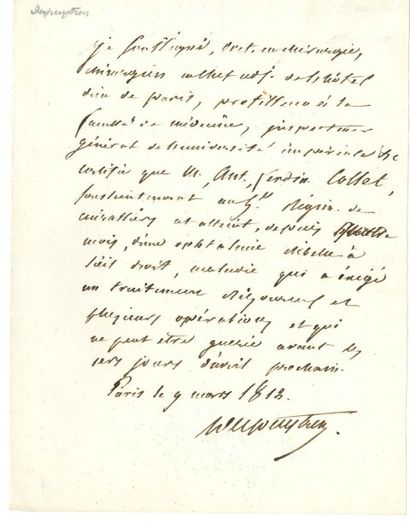 Dupuytren
je soussigné, doct. en chirurgie,
chirurgien en chef adj. de l'hôtel
dieu de paris, professeur à la
faculté de médecine, inspecteur
général de l'université impériale &c
certifie que M. Ant. Ferdin. Collet,
souslieutenant au Régim. de
cuirassiers est atteint, depuis quatre
mois, d'une ophtalmie rebelle à
l'œil droit, maladie qui a exigé
un traitement rigoureux et
plusieurs opérations et qui
ne peut être guérie avant les
jours d'avril prochain.
Paris le 9 mars 1813
Dupuytren.